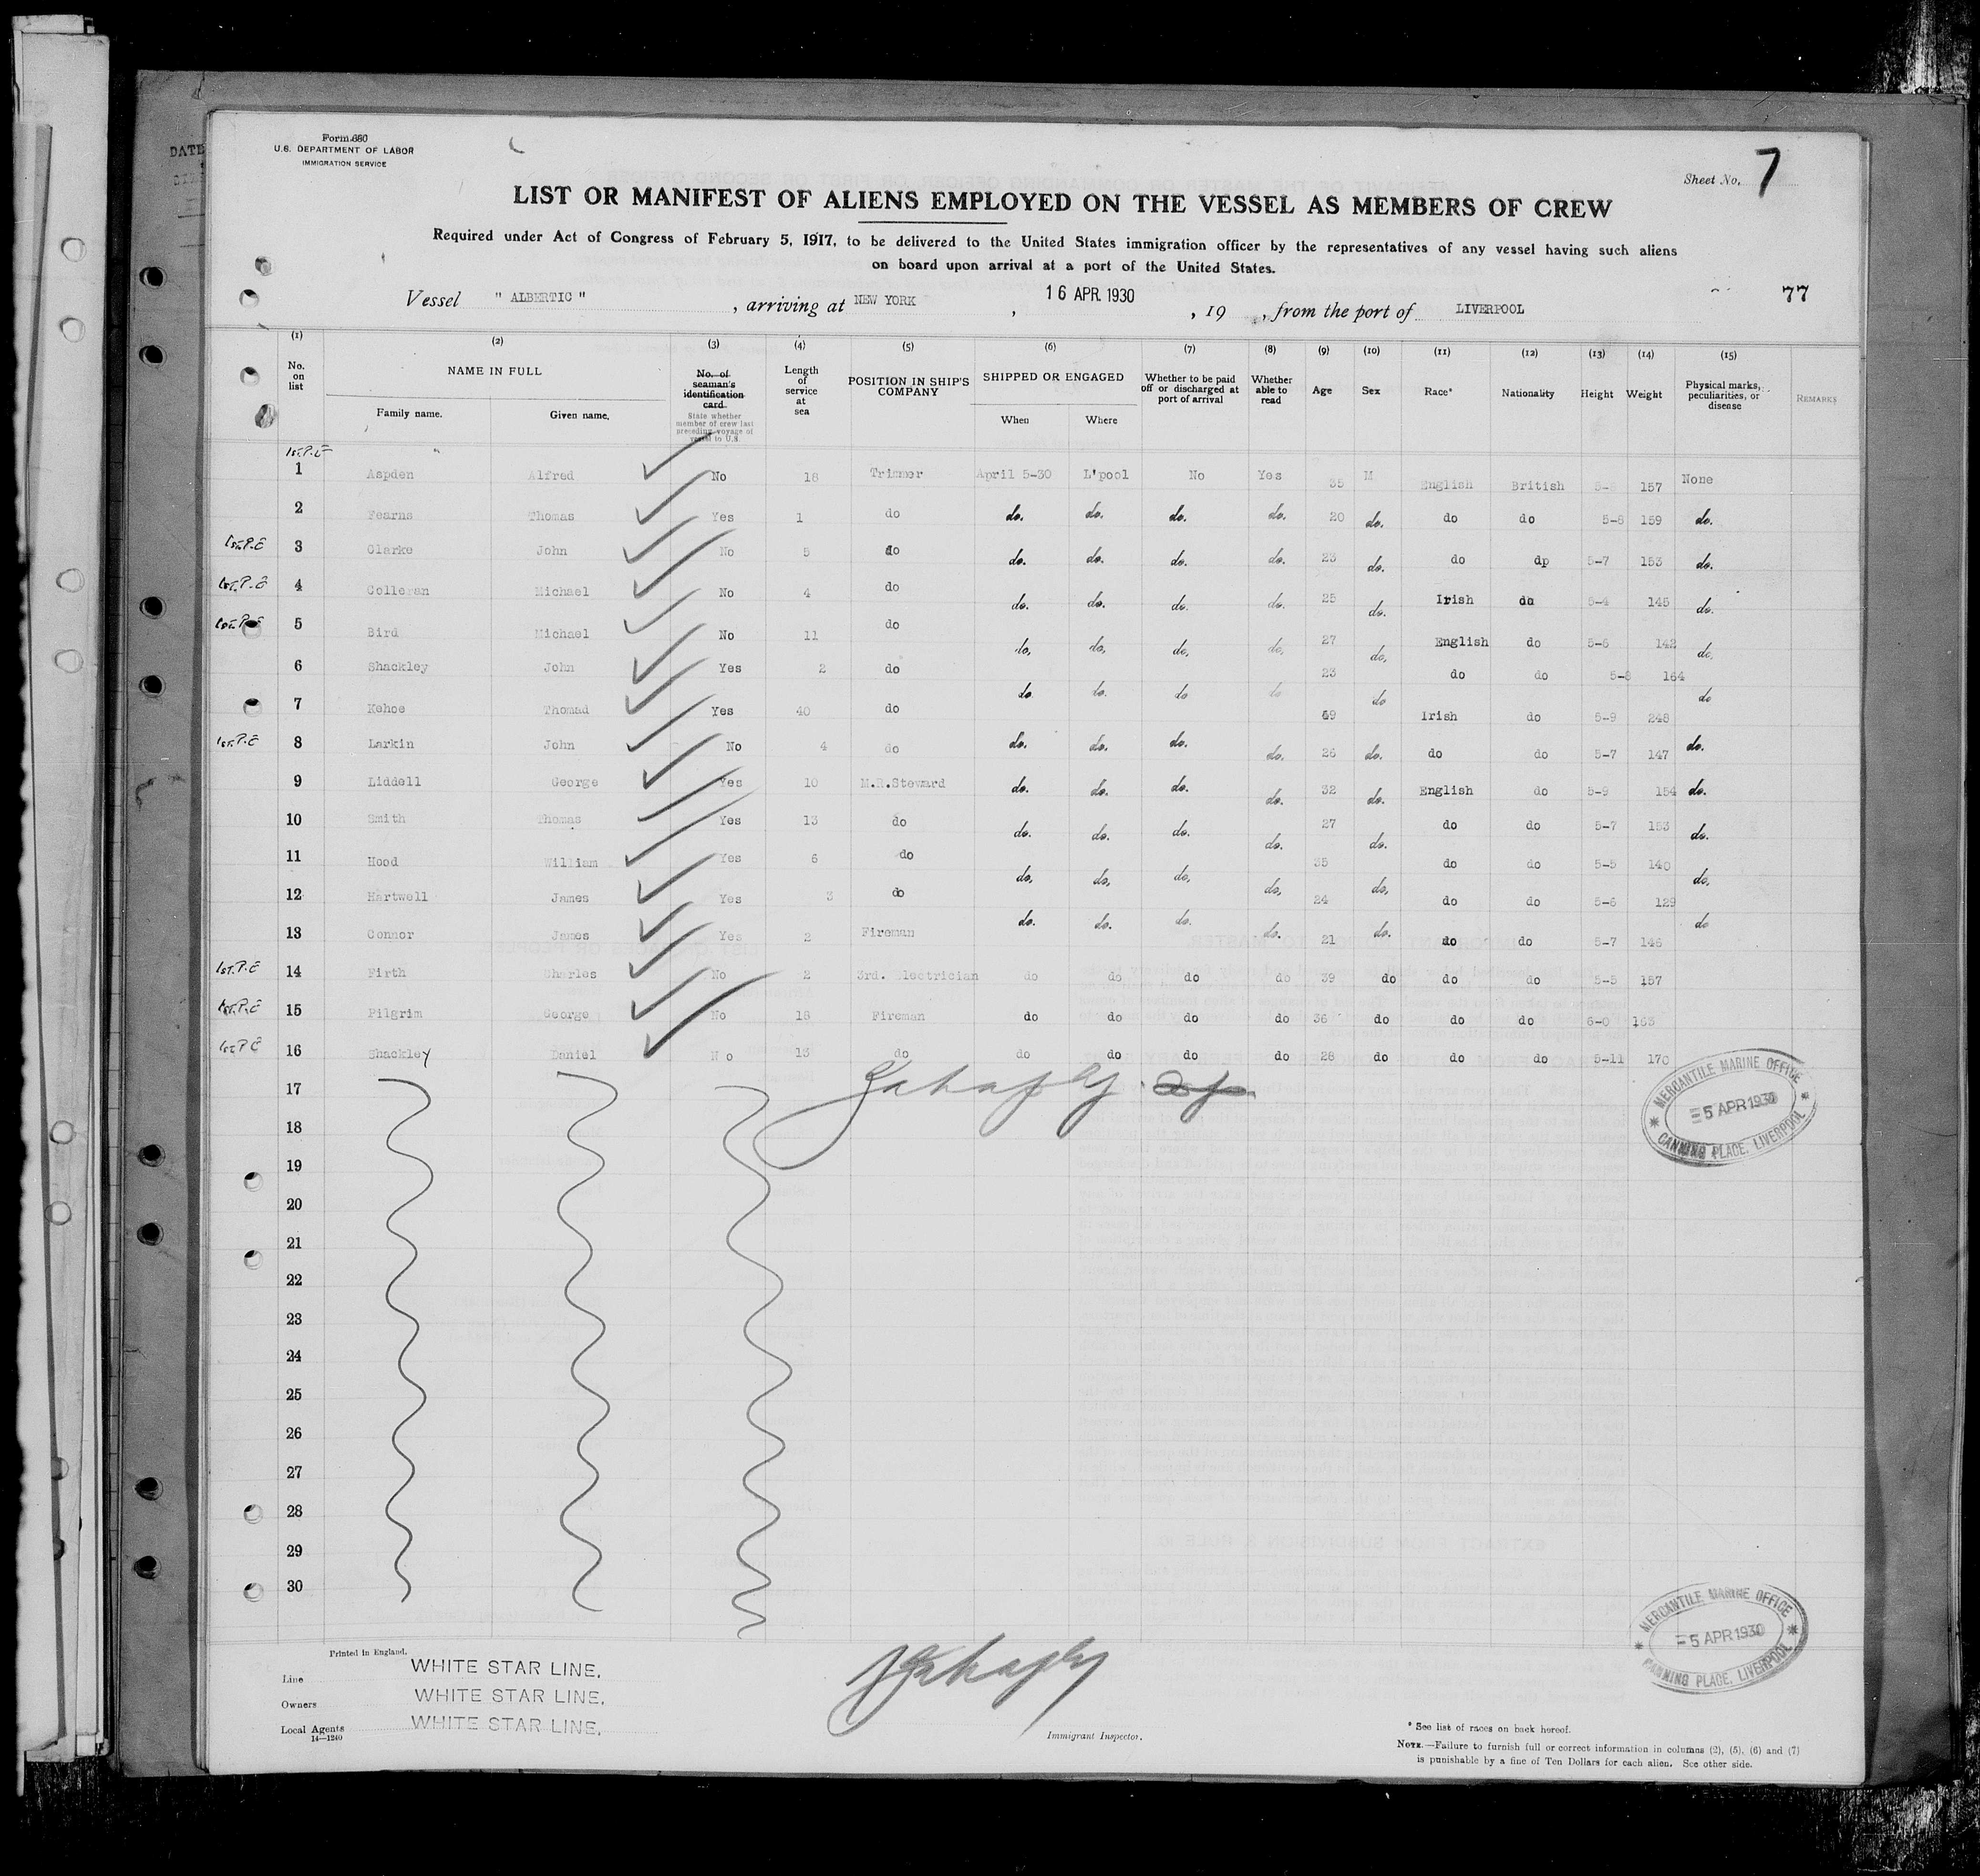 Form 680
U.S. DEPARTMENT OF LABOR
IMMIGRATION SERVICE
Sheet No. 7
LIST OR MANIFEST OF ALIENS EMPLOYED ON THE VESSEL AS MEMBERS OF CREW
Required under Act of Congress of February 5, 1917, to be delivered to the United States immigration officer by the representatives of any vessel having such aliens
on board upon arrival at a port of the United States.
Vessel " ALBERTIC " , arriving at NEW YORK , 16 APR. 1930 , 19 , from the port of LIVERPOOL
77
(1) (2) (3) (4) (5) (6) (7) (8) (9) (10) (11) (12) (13) (14) (15)
No. on list NAME IN FULL Family name. Given name. No. of seaman's identification card. State whether member of crew last preceding voyage of vessel to U.S. Length of service at sea POSITION IN SHIP'S COMPANY SHIPPED OR ENGAGED When Where Whether to be paid off or discharged at port of arrival Whether able to read Age Sex Race* Nationality Height Weight Physical marks, peculiarities, or disease REMARKS
1st.P.E
1 Aspden Alfred No 18 Trimmer April 5-30 L'pool No Yes 35 M English British 157 None
2 Fearns Thomas Yes 1 do do. do. do. do. 20 do. do do 5-8 159 do.
1st.P.E 3 Clarke John No 5 do do. do. do. do. 23 do. do dp 5-7 153 do.
1st.P.E 4 Colleran Michael No 4 do do. do. do. do. 25 do. Irish do 5-4 145 do.
1st.P.E 5 Bird Michael No 11 do do, do, do, do, 27 do, English do 5-6 142 do.
6 Shackley John Yes 2 do do do do do 23 do do do 5-8 164 do
7 Kehoe Thomad Yes 40 do 49 Irish do 5-9 248
1st.P.E 8 Larkin John No 4 do do. do. do. do. 26 do. do do 5-7 147 do.
9 Liddell George Yes 10 M.R.Steward do. do. do. do. 32 do. English do 5-9 154 do.
10 Smith Thomas Yes 13 do do. do. do. do. 27 do. do do 5-7 153 do.
11 Hood William Yes 6 do do, do, do, do, 35 do, do do 5-5 140 do,
12 Hartwell James Yes 3 do do. do. do. do. 24 do. do do 5-6 129 do
13 Connor James Yes 2 Fireman 21 do do 5-7 146
1st.P.E 14 Firth Charles No 2 3rd. Electrician do do do do 39 do do do 5-5 157
1st.P.E 15 Pilgrim George No 18 Fireman do do do do 36 do do do 6-0 163
1st P E 16 Shackley Daniel No 13 do do do do do 28 do do do 5-11 170
17
18
19
20
21
22
23
24
25
26
27
28
29
30
MERCANTILE MARINE OFFICE
5 APR 1930
CANNING PLACE, LIVERPOOL
MERCANTILE MARINE OFFICE
5 APR 1930
CANNING PLACE, LIVERPOOL
Printed in England.
Line WHITE STAR LINE.
Owners WHITE STAR LINE.
Local Agents WHITE STAR LINE.
14—1240
Immigrant Inspector.
* See list of races on back hereof.
NOTE.—Failure to furnish full or correct information in columns (2), (5), (6) and (7)
is punishable by a fine of Ten Dollars for each alien. See other side.